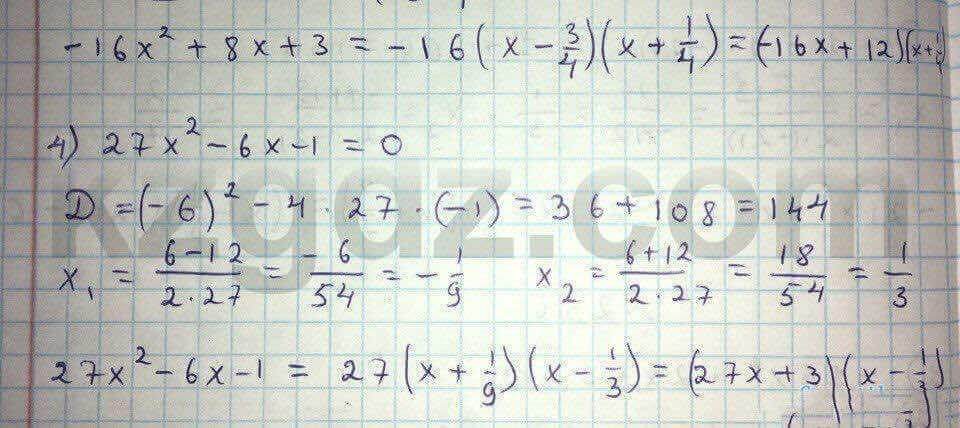 -16x² + 8x + 3 = -16(x - 3/4)(x + 1/4) = (-16x + 12)(x + 1/4)
4) 27x² - 6x - 1 = 0
D = (-6)² - 4 · 27 · (-1) = 36 + 108 = 144
x₁ = (6 - 12)/(2 · 27) = -6/54 = -1/9    x₂ = (6 + 12)/(2 · 27) = 18/54 = 1/3
27x² - 6x - 1 = 27(x + 1/9)(x - 1/3) = (27x + 3)(x - 1/3)
kzgdz.com